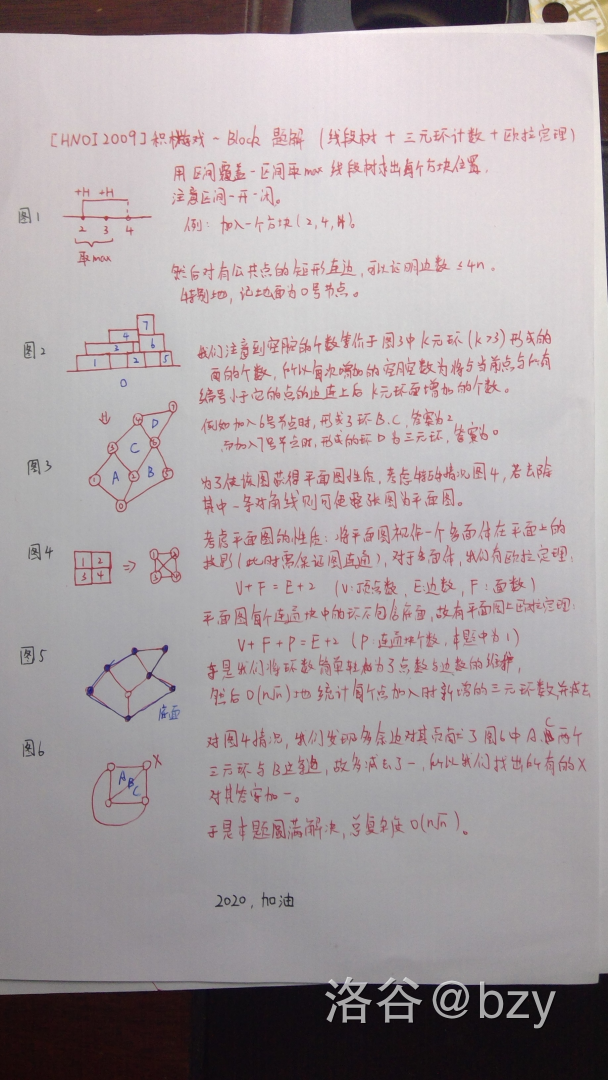 [HNOI2009]积木游戏 - Block 题解 (线段树 + 三元环计数 + 欧拉定理)
用区间覆盖-区间取max 线段树求出每个方块位置.
注意区间一开一闭。
图1
+H +H
2 3 4
取max
例: 加入一个方块(2,4,H)。
然后对有公共点的矩形连边, 可以证明边数 ≤4n。
特别地, 记地面为0号节点。
图2
7
4
3 6
1 2 5
0
我们注意到空腔的个数等价于图3中k元环(k>3)形成的
面的个数, 所以每次增加的空腔数为将与当前点与所有
编号小于它的点的边连上后k元环面增加的个数。
例如加入6号节点时, 形成了环B.C, 答案为2
而加入7号节点时, 形成的环D为三元环, 答案为0
图3
D
C
A B
为了使该图获得平面图性质, 考虑特殊情况图4, 若去除
其中一条对角线则可使整张图为平面图。
图4
1 2
3 4
⇒
考虑平面图的性质: 将平面图视作一个多面体在平面上的
投影(此时需保证图连通), 对于多面体, 我们有欧拉定理:
V+F=E+2 (V:顶点数, E:边数, F:面数)
平面图每个连通块中的环不包含底面, 故有平面图上欧拉定理:
V+F+P=E+2 (P:连通块个数, 本题中为1)
图5
底面
于是我们将环数简单转换为了点数与边数的维护,
然后O(n√n)地统计每个点加入时新增的三元环数并减去
图6
A
B
C
X
对图4情况, 我们发现多余边对其贡献了图6中A.C两个
三元环与B这条边, 故多减去了一, 所以我们找出所有的X
对其答案加一。
于是本题圆满解决, 总复杂度O(n√n)。
2020, 加油
洛谷@bzy